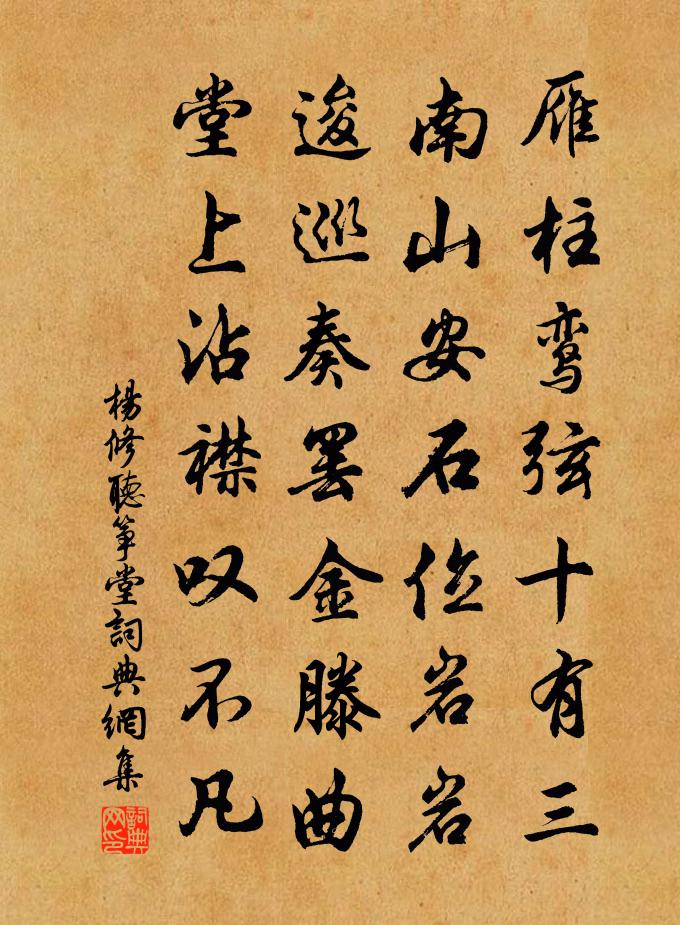 雁柱鸾弦十有三
南山安石位岩岩
逡巡奏罢金滕曲
堂上沾襟叹不凡
楊修聽箏堂詞典網集
詞典网印